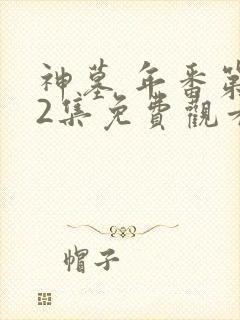 神墓 年番第
2集免費觀
帽子